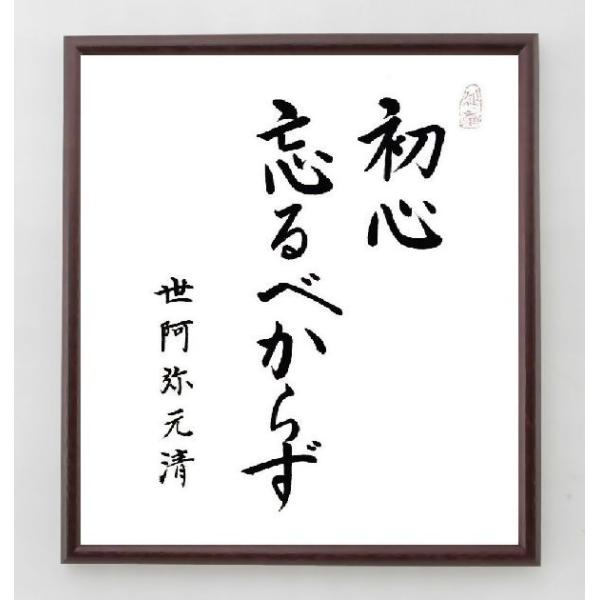 初心
忘るべからず
世阿弥元清